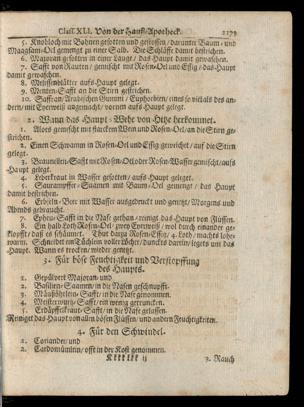 Claſſ. XLI. Von der Hauß-Apotheck. 2179
5. Knoblach mit Bohnen geſotten und geſtoſſen / darunter Baum- und
Maagſam-Oel gemengt zu einer Salb. Die Schläffe damit beſtrichen.
6. Majoran geſotten in einer Lauge / das Haupt damit gewaſchen.
7. Safft von Rauten / gemiſcht mit Roſen-Oel und Eſſig / das Haupt
damit gewaſchen.
8. Meliſſenblätter aufs Haupt gelegt.
9. Menten-Safft an die Stirn geſtrichen.
10. Saffran / Arabiſchen Gummi / Euphorbien / eines ſo viel als des an-
dern / mit Eyerweiß angemacht / vornen aufs Haupt gelegt.
2. Wann das Haupt-Wehe von Hitz herkommet.
1. Aloes gemiſcht mit ſtarckem Wein und Roſen-Oel / an die Stirn ge-
ſtrichen.
2. Einen Schwamm in Roſen-Oel und Eſſig geweicht / auf die Stirn
gelegt.
3. Braunellen-Safft mit Roſen-Oel oder Roſen-Waſſer gemiſcht / aufs
Haupt gelegt.
4. Leberkraut in Waſſer geſotten / aufs Haupt gelegt.
5. Saurampffer-Saamen mit Baum-Oel gemengt / das Haupt
damit beſtrichen.
6. Erbſeln-Beer mit Waſſer ausgedruckt und genetzt / Morgens und
Abends gebraucht.
7. Epheu-Safft in die Naſe gethan / reinigt das Haupt von Flüſſen.
8. Ein halb Loth Roſen-Oel / zwey Eyerweiß / wol durch einander ge-
klopfft daß es ſchäumet. Thut darzu Roſen-Eſſig / 4. Loth / machts lober
warm. Schneidet ein Tüchlein voller Löcher / dunckts darein / legets um das
Haupt. Wann es trocken / wieder genetzt.
3. Für böſe Feuchtigkeit und Verſtopffung
des Haupts.
1. Gepülvert Majoran / und
2. Baſilien-Saamen / in die Naſen geſchnupfft.
3. Mäußöhrlein-Safft / in die Naſe genommen.
4. Meiſterwurtz-Safft / ein wenig getruncken.
5. Erdäpffelkraut-Safft / in die Naſe gelaſſen.
Reiniget das Haupt von allen böſen Flüſſen / und andern Feuchtigkeiten.
4. Für den Schwindel.
1. Coriander / und
2. Cardomümlein / offt in der Koſt genommen.
3. Rauch